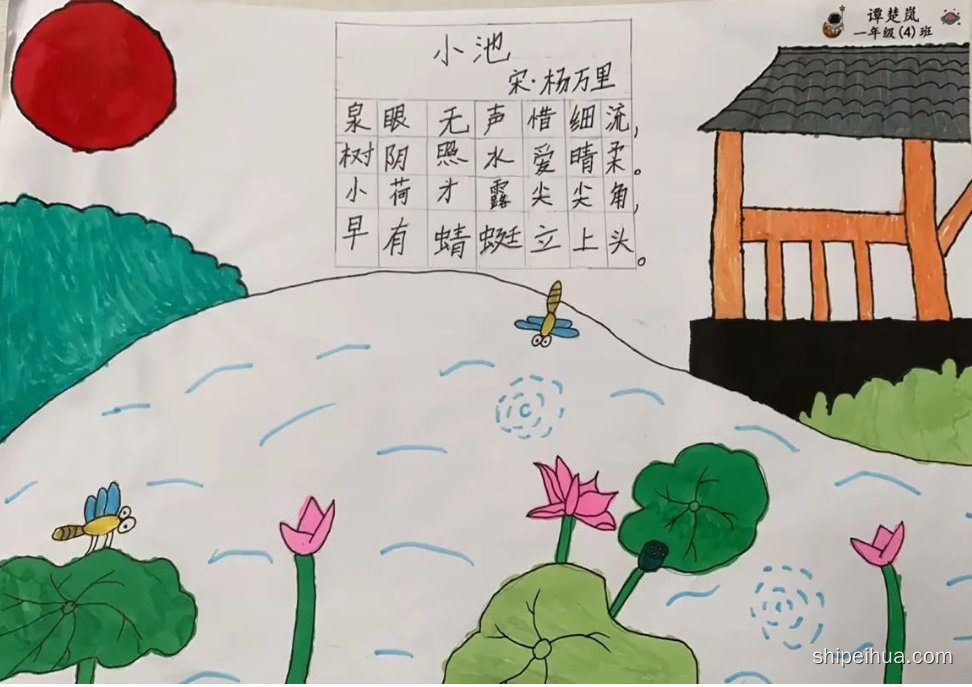 谭楚岚
一年级(4)班
小池
宋·杨万里
泉眼无声惜细流,
树阴照水爱晴柔。
小荷才露尖尖角,
早有蜻蜓立上头。
shipeihua.com